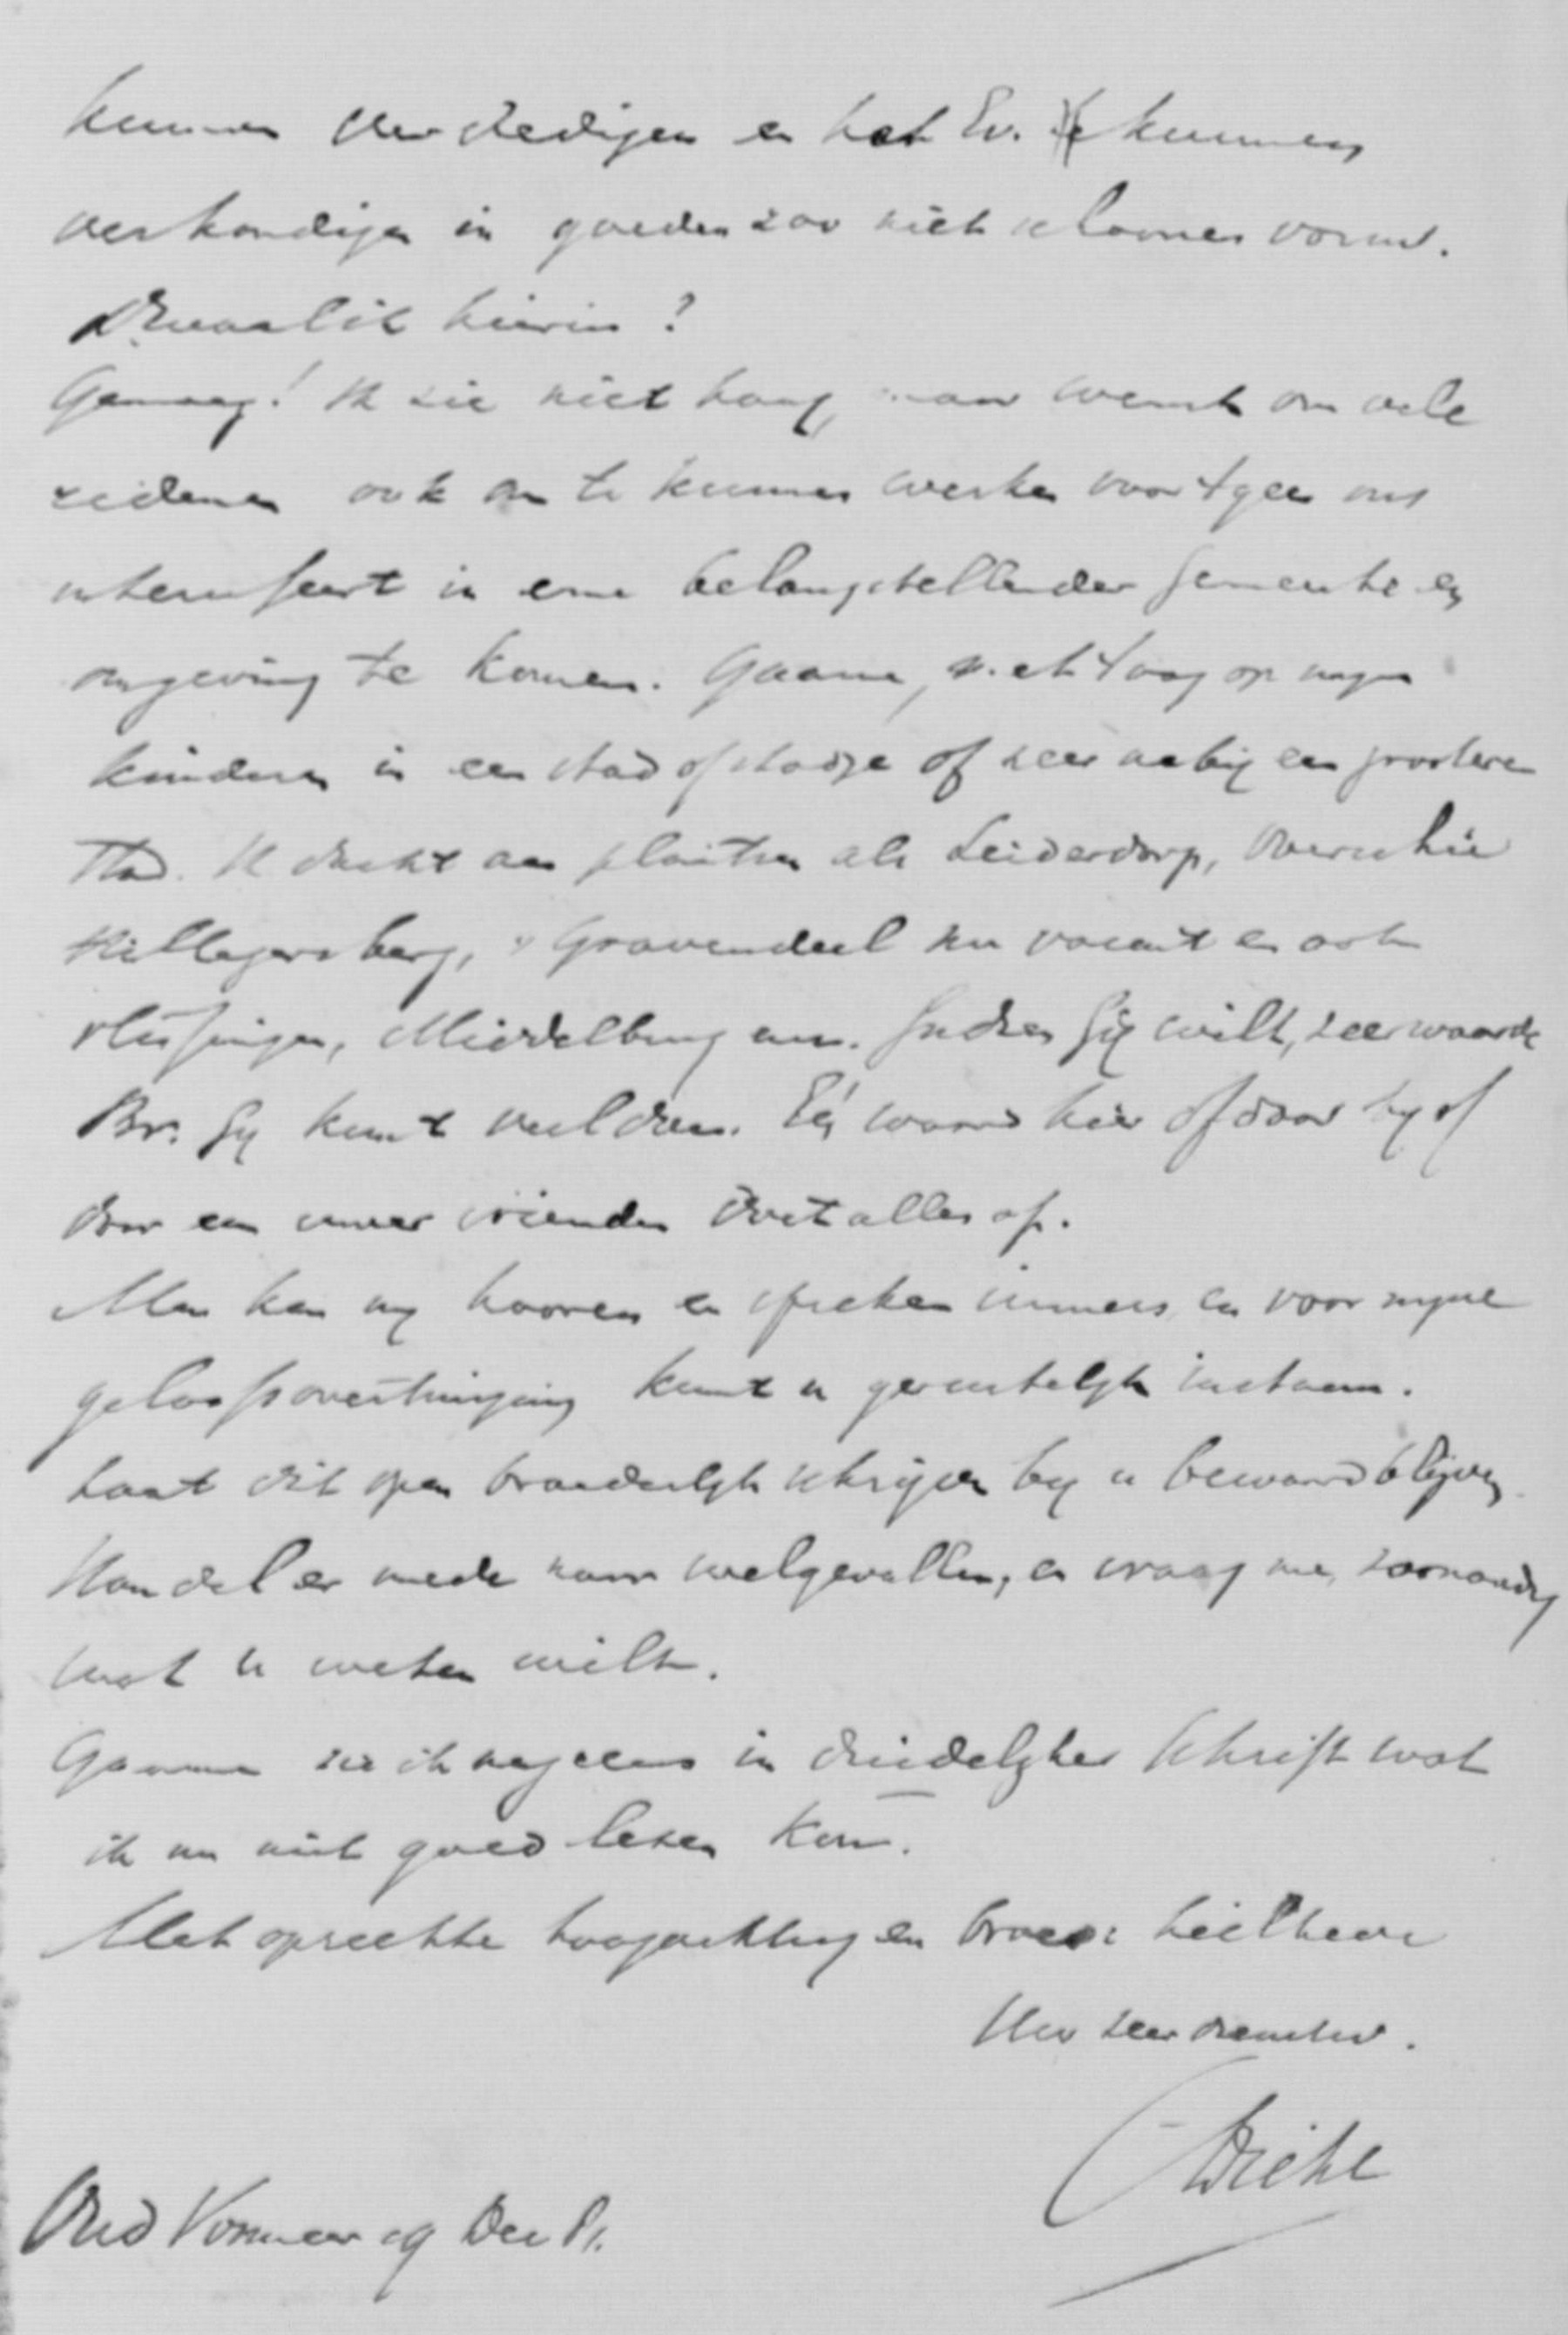 kunnen verdedigen en het Ev. kunnen
verkondigen in goeden zoo niet schoonen vorm.
Dwaal ik hierin?
Genoeg! Ik zie niet hoog, maar wensch om vele
redenen ook om te kunnen werken voor 'tgeen ons
interesseert in eene belangstellender gemeente en
omgeving te komen. Gaarne, m. et oog op mijn
kinderen in een stad of stadje of zeer nabij een grootere
stad. Ik dacht aan plaatsen als Leiderdorp, Overschie
Hillegersberg, 's Gravendeel nu vacant en ook
Vlissingen, Middelburg enz. Indien gij wilt, zeer waarde
Br. gij kunt veel doen. Eén woord hier of daar bij of
door een uwer vrienden doet alles af.
Men kan mij hooren en spreken immers en voor mijne
geloofsovertuiging kunt u gerustelijk instaan.
Laat dit open broederlijk schrijven bij u bewaard blijven.
Handel er mede naar welgevallen, en vraag me, zoo noodig
wat u weten wilt.
Gaarne zie ik nog eens in duidelijker schrift wat
ik nu niet goed lezen kon.
Met oprechte hoogachting en broed: heilbede
Uw zeer dienstw.
Diehl
Oud Vosmeer 29 Dec 81.